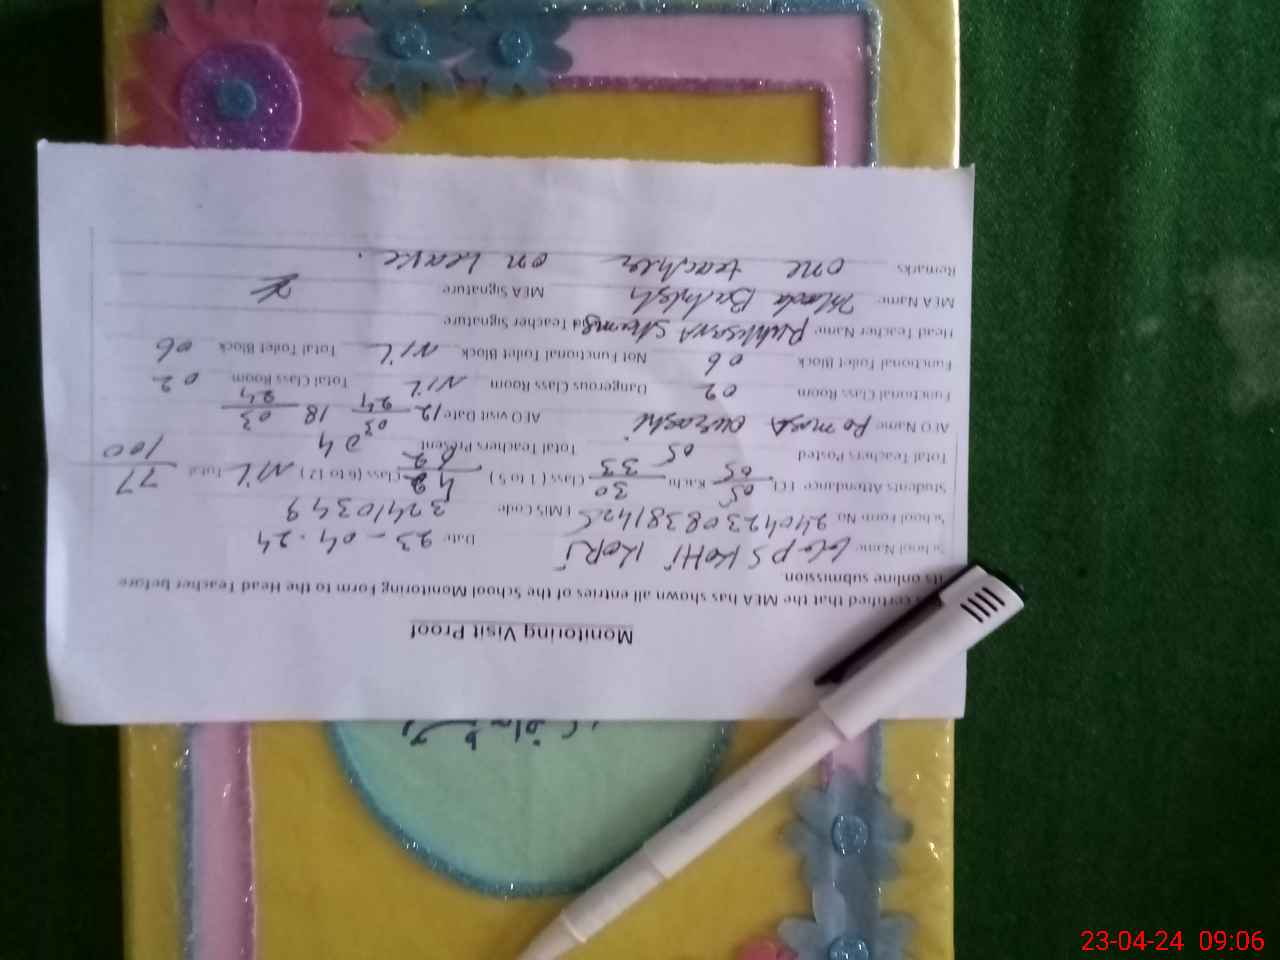 Monitoring Visit Proof
certified that the MEA has shown all entries of the School Monitoring Form to the Head Teacher before
its online submission
School Name GGPS KOHI KORI Date 23-04-24
School Form No. EMIS Code 32410349
Students Attendance ECI 05/05 Kachi 30/33 Class (1 to 5) Class (6 to 12) NIL Total 77/100
Total Teachers Posted 05 Total Teachers Present 04
AEO Name AEO visit Date 12/03/24 18/03/24
Functional Class Room 02 Dangerous Class Room NIL Total Class Room 02
Functional Toilet Block 06 Not Functional Toilet Block NIL Total Toilet Block 06
Head Teacher Name Teacher Signature
MEA Name MEA Signature
Remarks one teacher on leave.
23-04-24 09:06